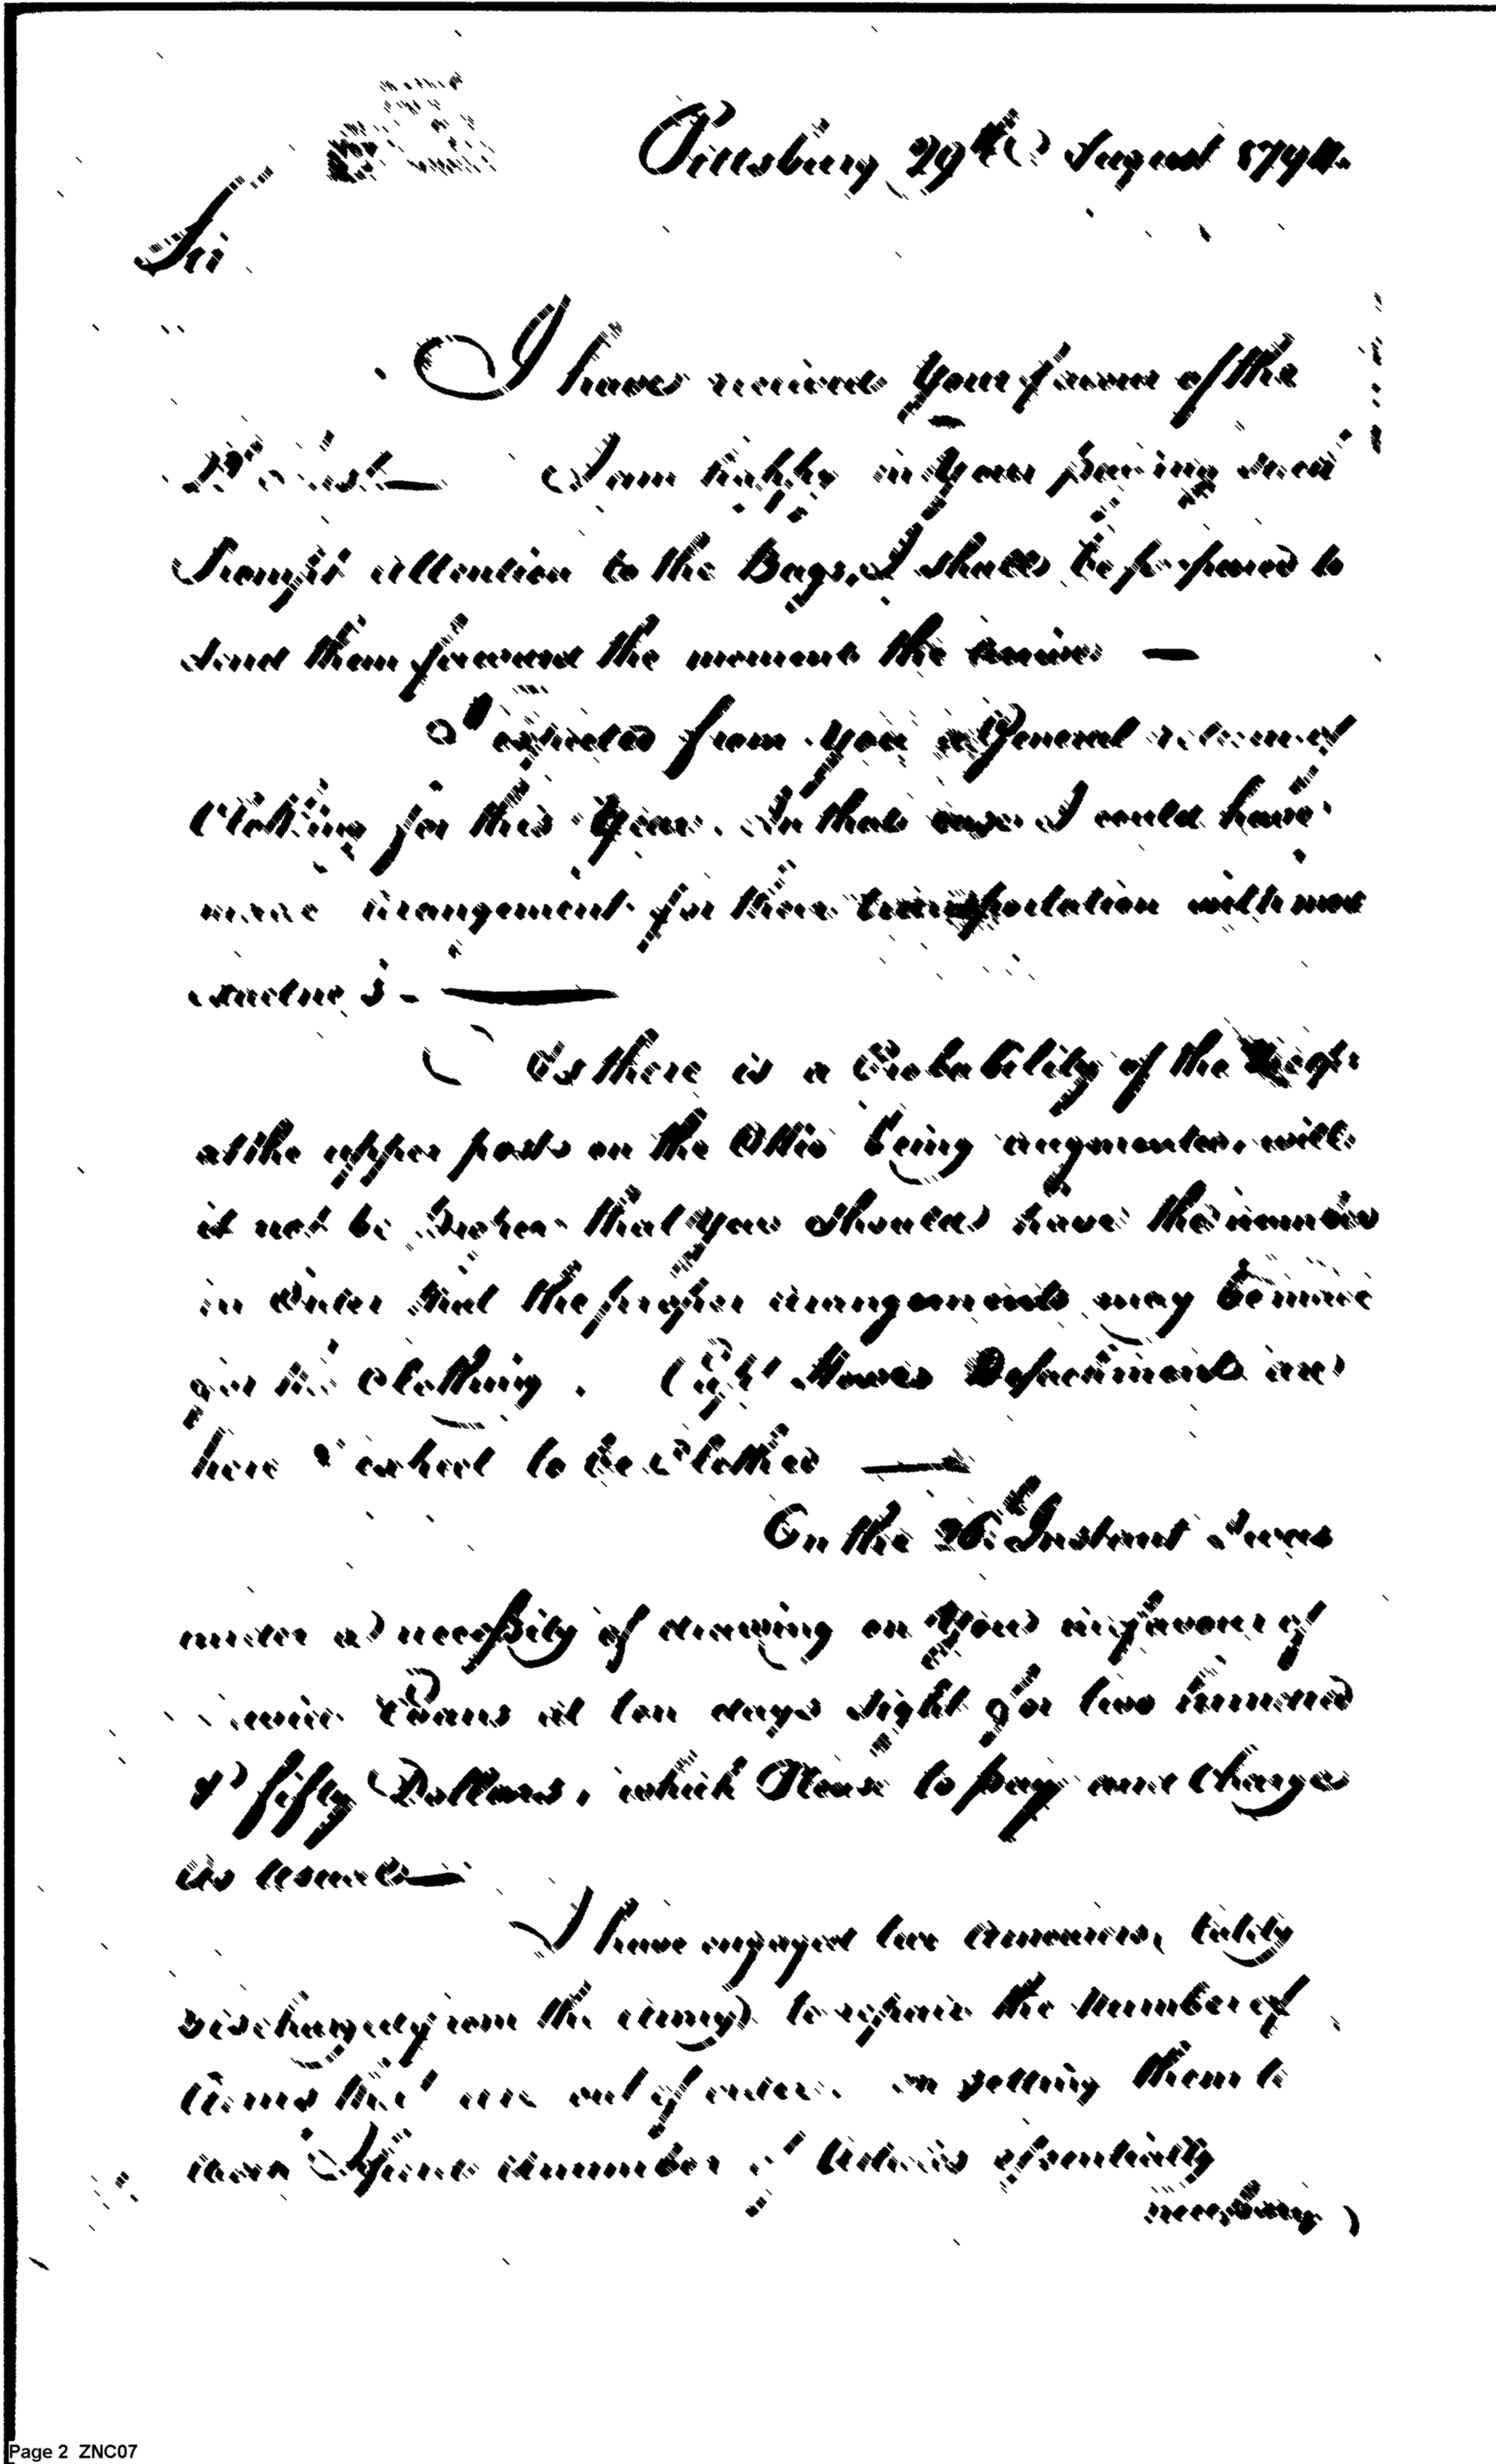 Pittsburg 29th August 1794.
Sir
I have received your favour of the
Inst — I am happy in your paying such
Prompt attention to the Bags, I shall be prepared to
send them forward the moment the arrive —
I expected from you a General return of
Clothing for this Year. In that case I could have
made arangement for their transportation with more
exactness —
As there is a Probability of the Troops
at the upper posts on the Ohio being augmented, will
it not be proper that you should have the number
in order that the proper arangements may be made
for the Clothing. Capt Howes Detachment are
here I expect to be Clothed —
On the 26th Instant I was
under a necessity of drawing on you in favour of
Evans at ten days sight for two hundred
& fifty Dollars, which Please to pay and Charge
as usual —
I have engaged two Armourers, lately
discharged from the army to repair the Number of
Arms that are out of order. on setting them to
work I found a number of Articles essentially
necessary